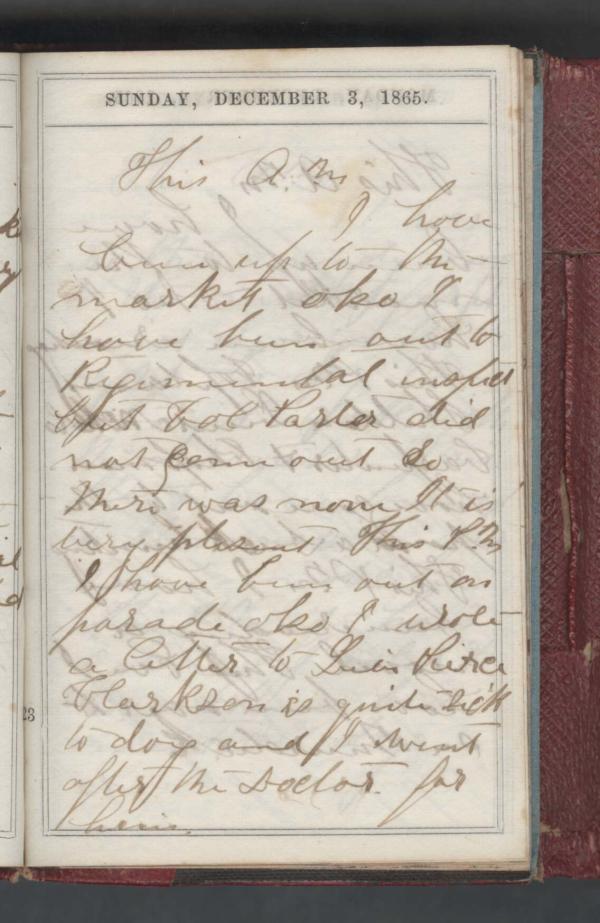 SUNDAY, DECEMBER 3, 1865.
This A.M
I have
been up to the
market also I
have been out to
Regimental inspect
but Col Parler did
not come out So
there was none It is
very plesent This P.M
I have been out on
parade also I wrote
a letter to Pierce
Clarkson is quite sick
to day and I went
after the Doctor for
him.
23